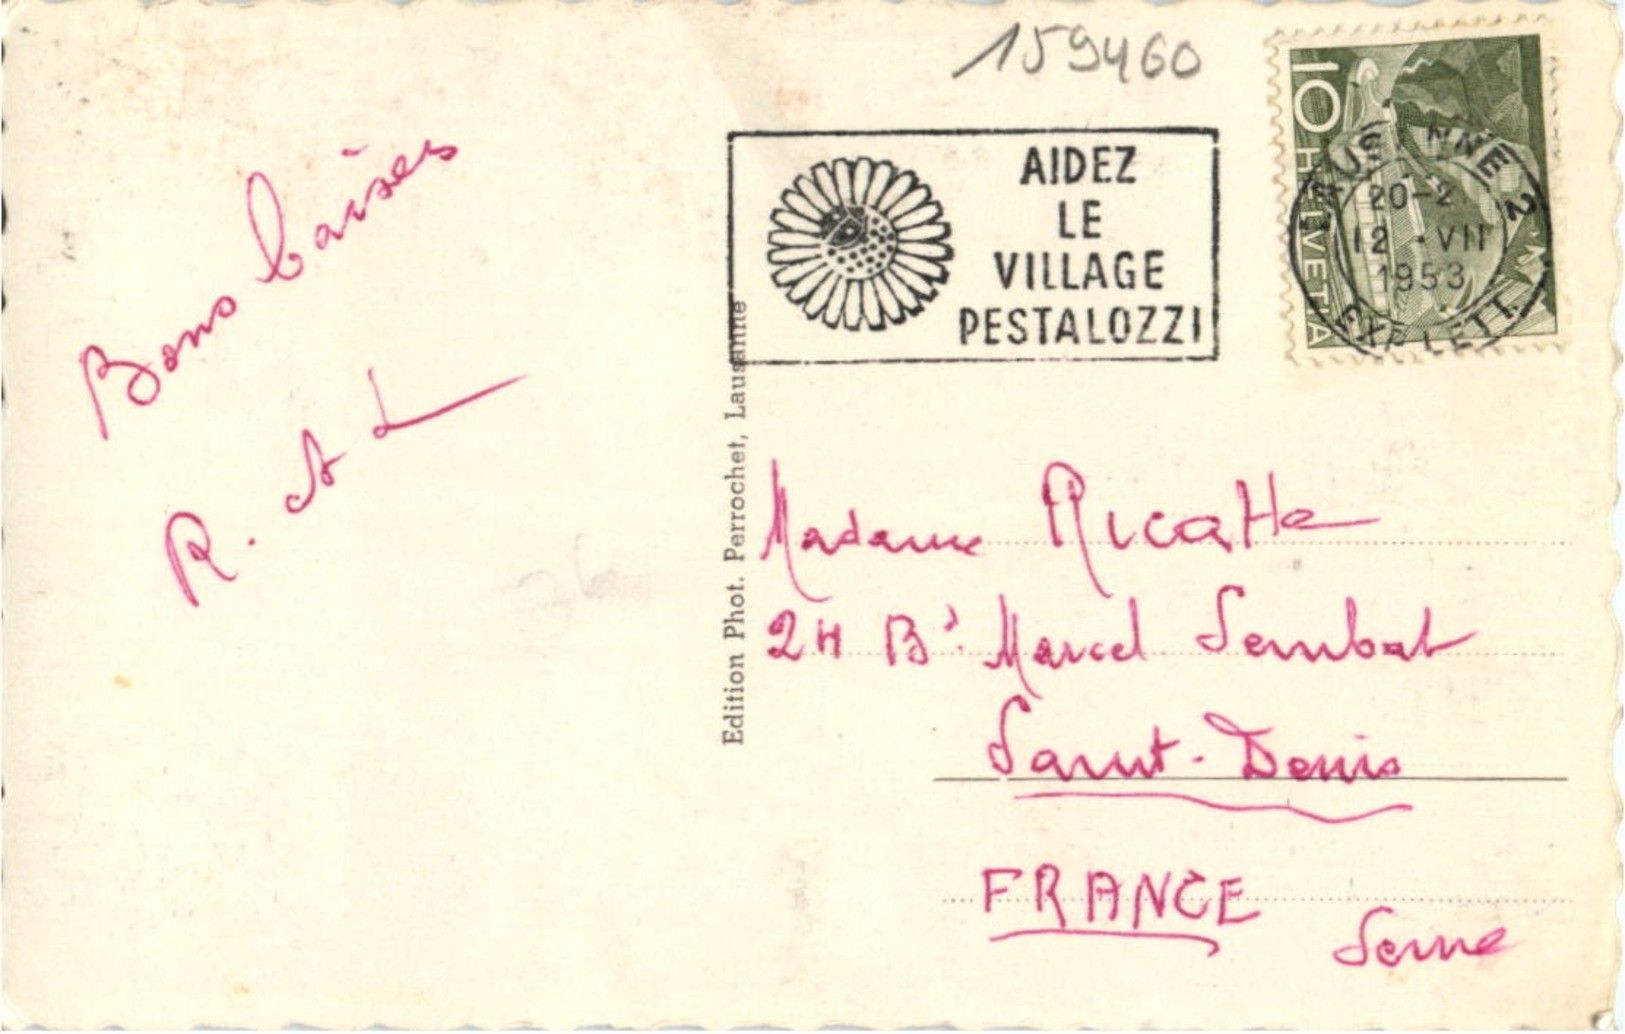 159460
Bons baisers
R. A L
76
AIDEZ
LE
VILLAGE
PESTALOZZI
10 HELVETIA
LAUSANNE 2
20-2
12. VII
1953
EXP. LETT.
Edition Phot. Perrochet, Lausanne
Madame Ricatte
24 Bd Marcel Sembat
Saint-Denis
FRANCE
Seine